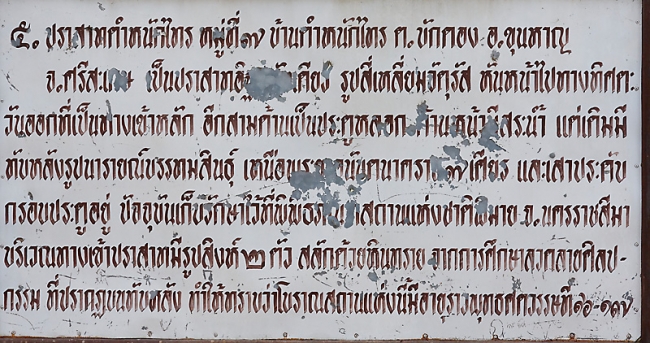 ๕. ปราสาทตำหนักไทร หมู่ที่๗ บ้านตำหนักไทร ต.บักดอง อ.ขุนหาญ
จ.ศรีสะเกษ เป็นปราสาทอิฐ เดียว รูปสี่เหลี่ยมจัตุรัส หันหน้าไปทางทิศตะ-
วันออกที่เป็นทางเข้าหลัก อีกสามด้านเป็นประตูหลอก ด้านหน้ามีสระน้ำ แต่เดิมมี
ทับหลังรูปนารายณ์บรรทมสินธุ์ เหนือพระยาอนันตนาคราช ๗ เศียร และเสาประดับ
กรอบประตูอยู่ ปัจจุบันเก็บรักษาไว้ที่พิพิธภัณฑสถานแห่งชาติพิมาย จ.นครราชสีมา
บริเวณทางเข้าปราสาทมีรูปสิงห์ ๒ ตัว สลักด้วยหินทราย จากการศึกษาลวดลายศิลป-
กรรม ที่ปรากฏบนทับหลัง ทำให้ทราบว่าโบราณสถานแห่งนี้มีอายุราวพุทธศตวรรษที่๑๖-๑๗